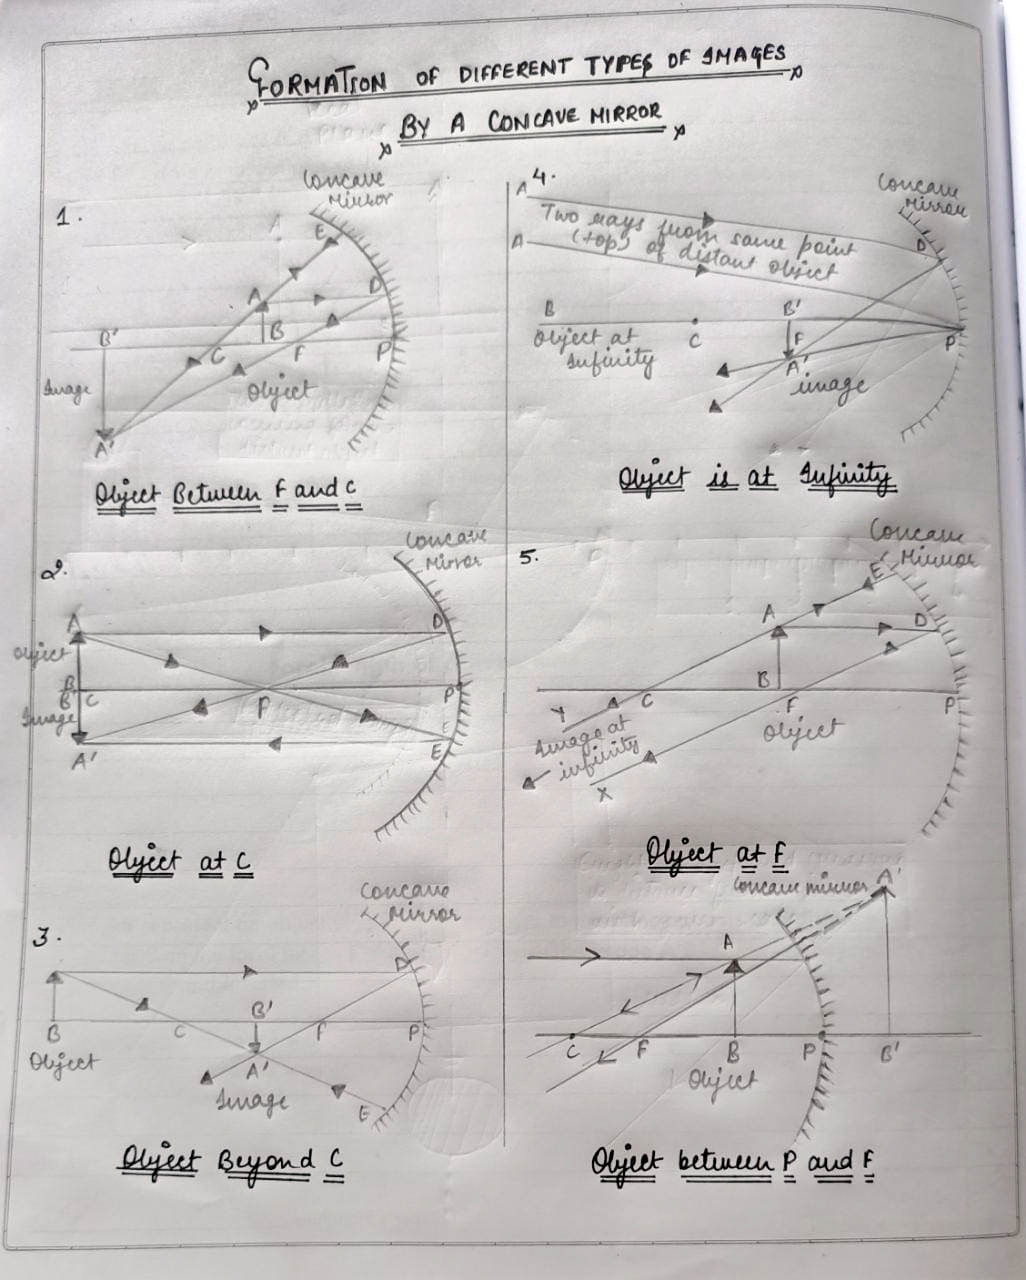 FORMATION OF DIFFERENT TYPES OF IMAGES
BY A CONCAVE MIRROR
1.
Concave
Mirror
E
A
D
B'
B
C
F
P
Image
Object
A'
Object Between F and C
2.
Concave
Mirror
A
D
Object
B
B' C
F
P
Image
A'
E
Object at C
3.
Concave
Mirror
D
B'
B
C
F
P
Object
A'
Image
E
Object Beyond C
4.
Concave
Mirror
A
Two rays from same point
A
(top) of distant object
D
B
B'
Object at
Infinity
C
F
P
A'
image
Object is at Infinity
5.
Concave
Mirror
E
A
D
B
C
F
P
Y
Object
Image at
infinity
X
Object at F
Concave mirror
A'
A
C
F
B
P
B'
Object
Object between P and F